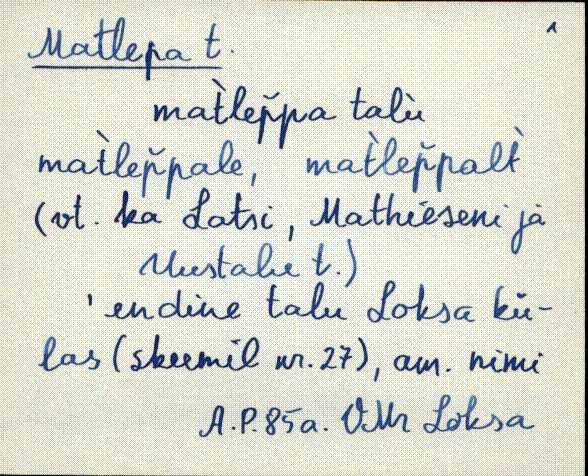 Matlepa t.
mat̀lep̆pa talù
mat̀lep̆pale, mat̀lep̆palt̀
(vt. ka Latsi, Mathieseni ja
Uustalu t.)
'endine talu Loksa kü-
las (skeemil nr. 27), am. nimi
A.P. 85 a. VMr Loksa